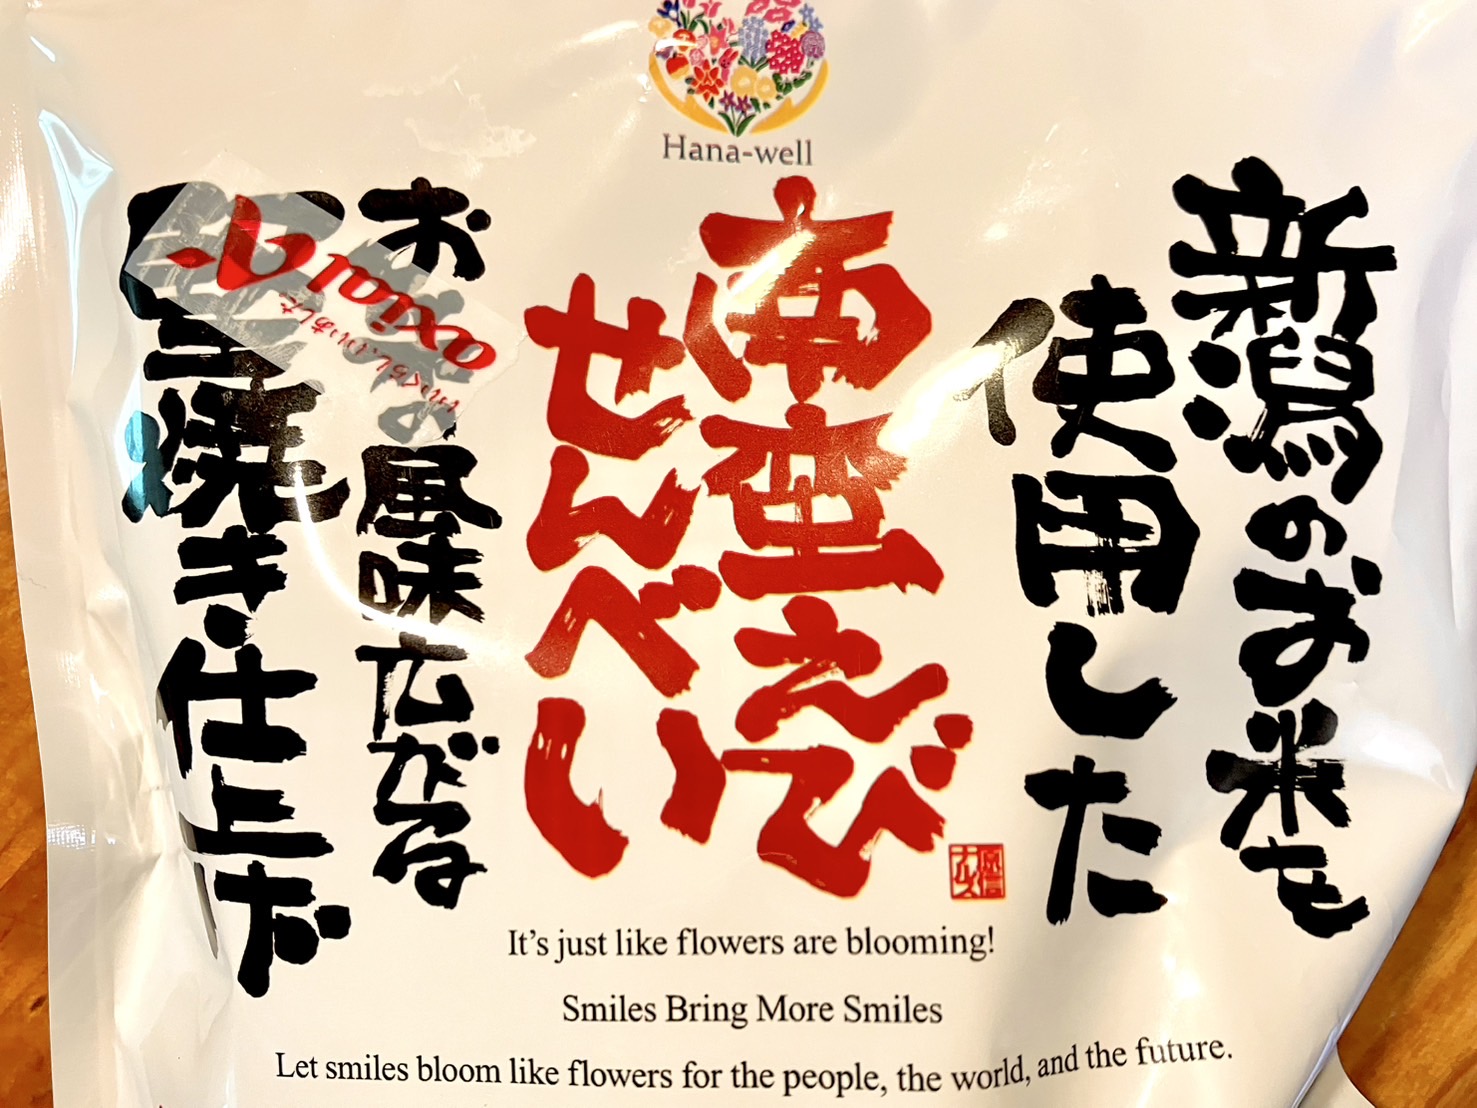 Hana-well
新潟のお米を
使用した
南蛮えび
せんべい
風味広がる
焼き仕上げ
It's just like flowers are blooming!
Smiles Bring More Smiles
Let smiles bloom like flowers for the people, the world, and the future.